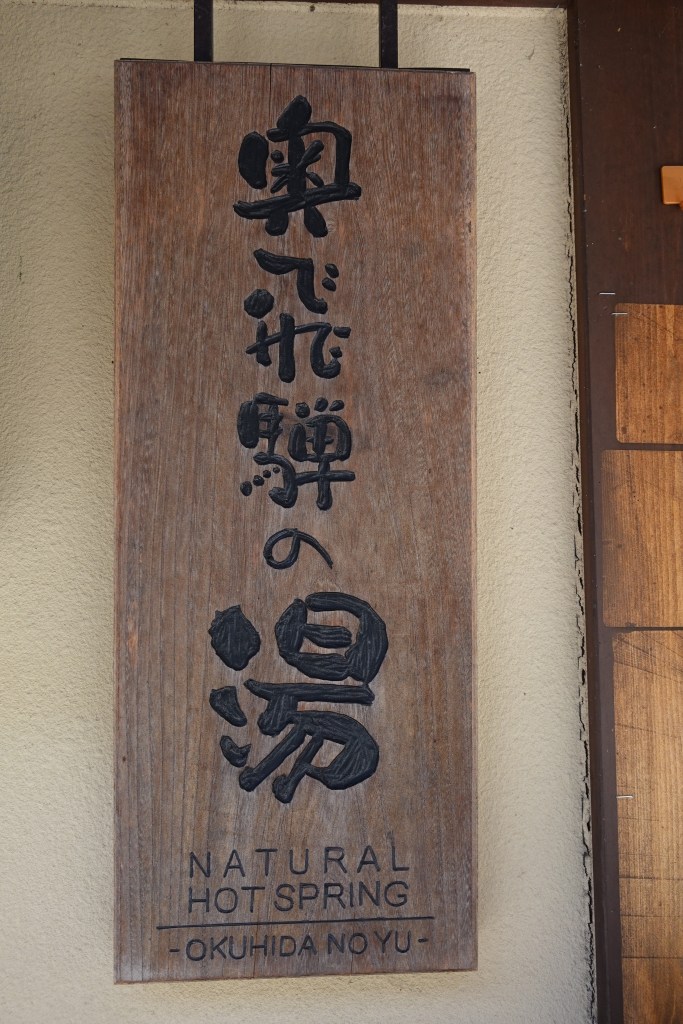 奥飛騨の湯
NATURAL
HOT SPRING
-OKUHIDA NO YU-